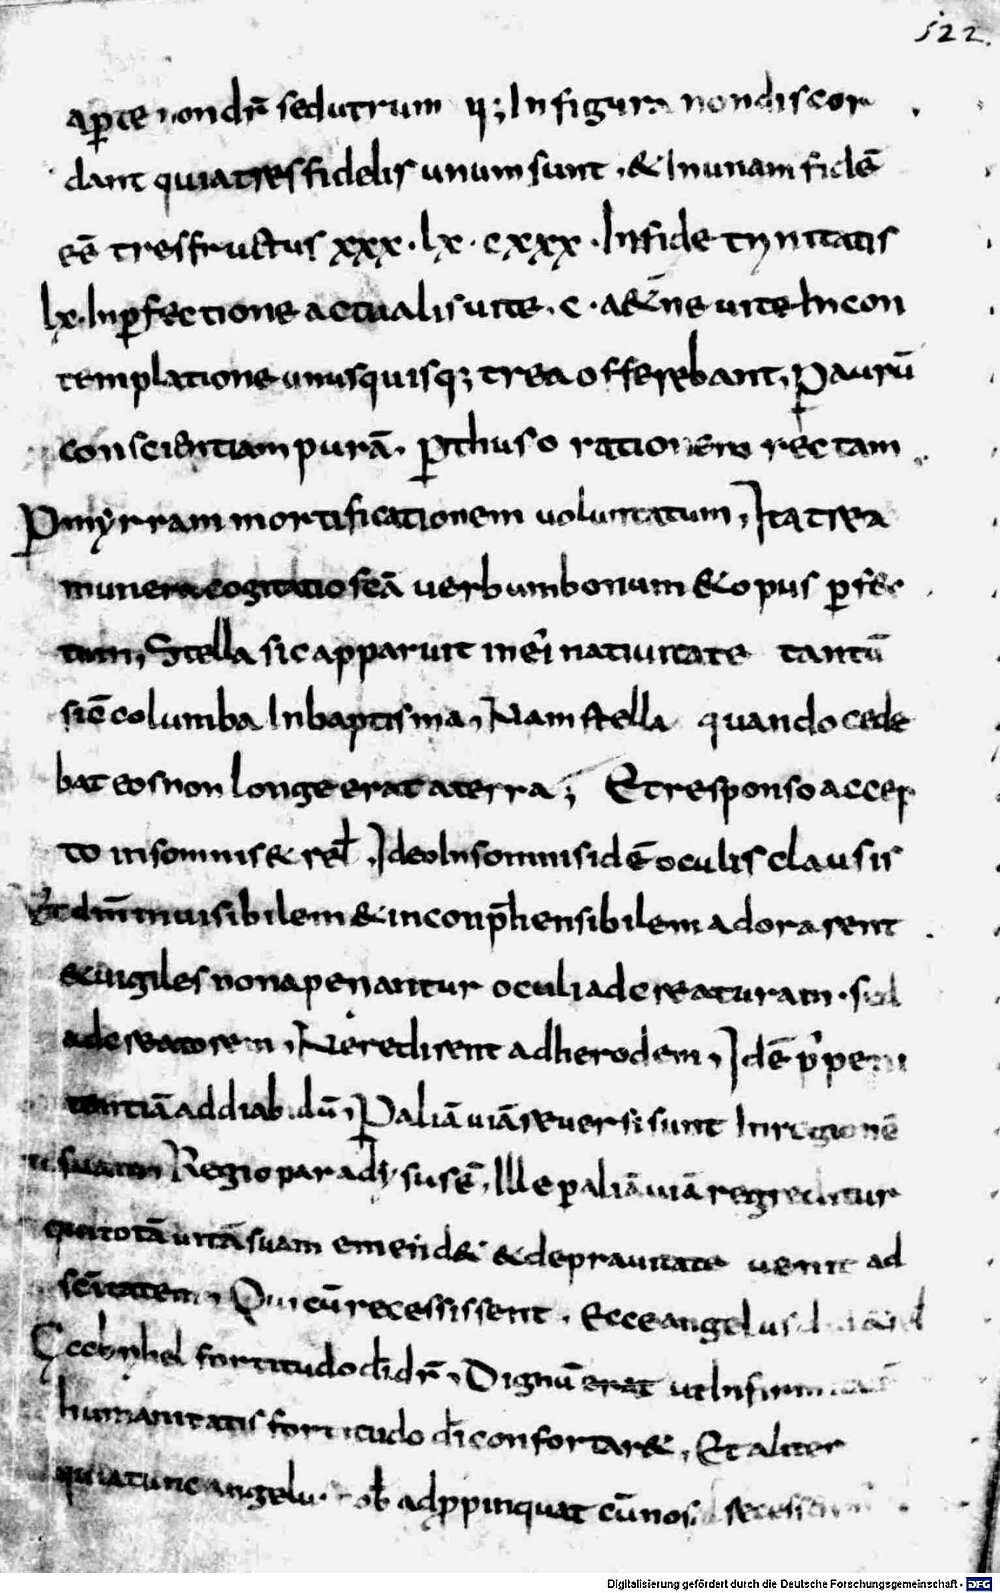 522.
aꝑte nondr̄ sed utrum In figura non discor
dant quia tres fidelis unum sunt . & In unam fidē
eē tres fructus xxx . lx . c xxx . In fide trinitatis
lx . In ꝑfectione actualis uite . c . a&ne uite In con
templatione unusquisq; trea offerebant, P aurū
conscientiam purā. ꝑ thus o rationem rectam
P myrram mortificationem uoluntatum, Ita trea
munera cogitatio scā uerbum bonum & opus ꝑfec
tum, Stella sic apparuit in natiuitate tantū
sic columba In baptisma, Nam stella quando cede
bat eos non longe erat a terra; Et responso accep
to in somnis & rel̄ , Ideo In somnis idē oculis clausis
ut dn̄m inuisibilem & inconp̄hensibilem adorarent
& uigiles non apenantur oculi ad creaturam . sed
ad creatorem, Ne redirent ad herodem, Idē peni
tentiā ad diab , P aliā uiā reuersi sunt In regionē
suam Regio paradisus ē, Ille ꝑ aliā uiā regreditur
qui totā uitā suam emend& & de prauitate uenit ad
scītatem, Qui cū recessissent . Ecce angelus
fortitudo dī dr̄, Dignū erat ut Infirm
humanitatis fortitudo dī confortar&, Et aliter
quia tunc angelus adp̱pinquat cū nos
Digitalisierung gefördert durch die Deutsche Forschungsgemeinschaft - DFG